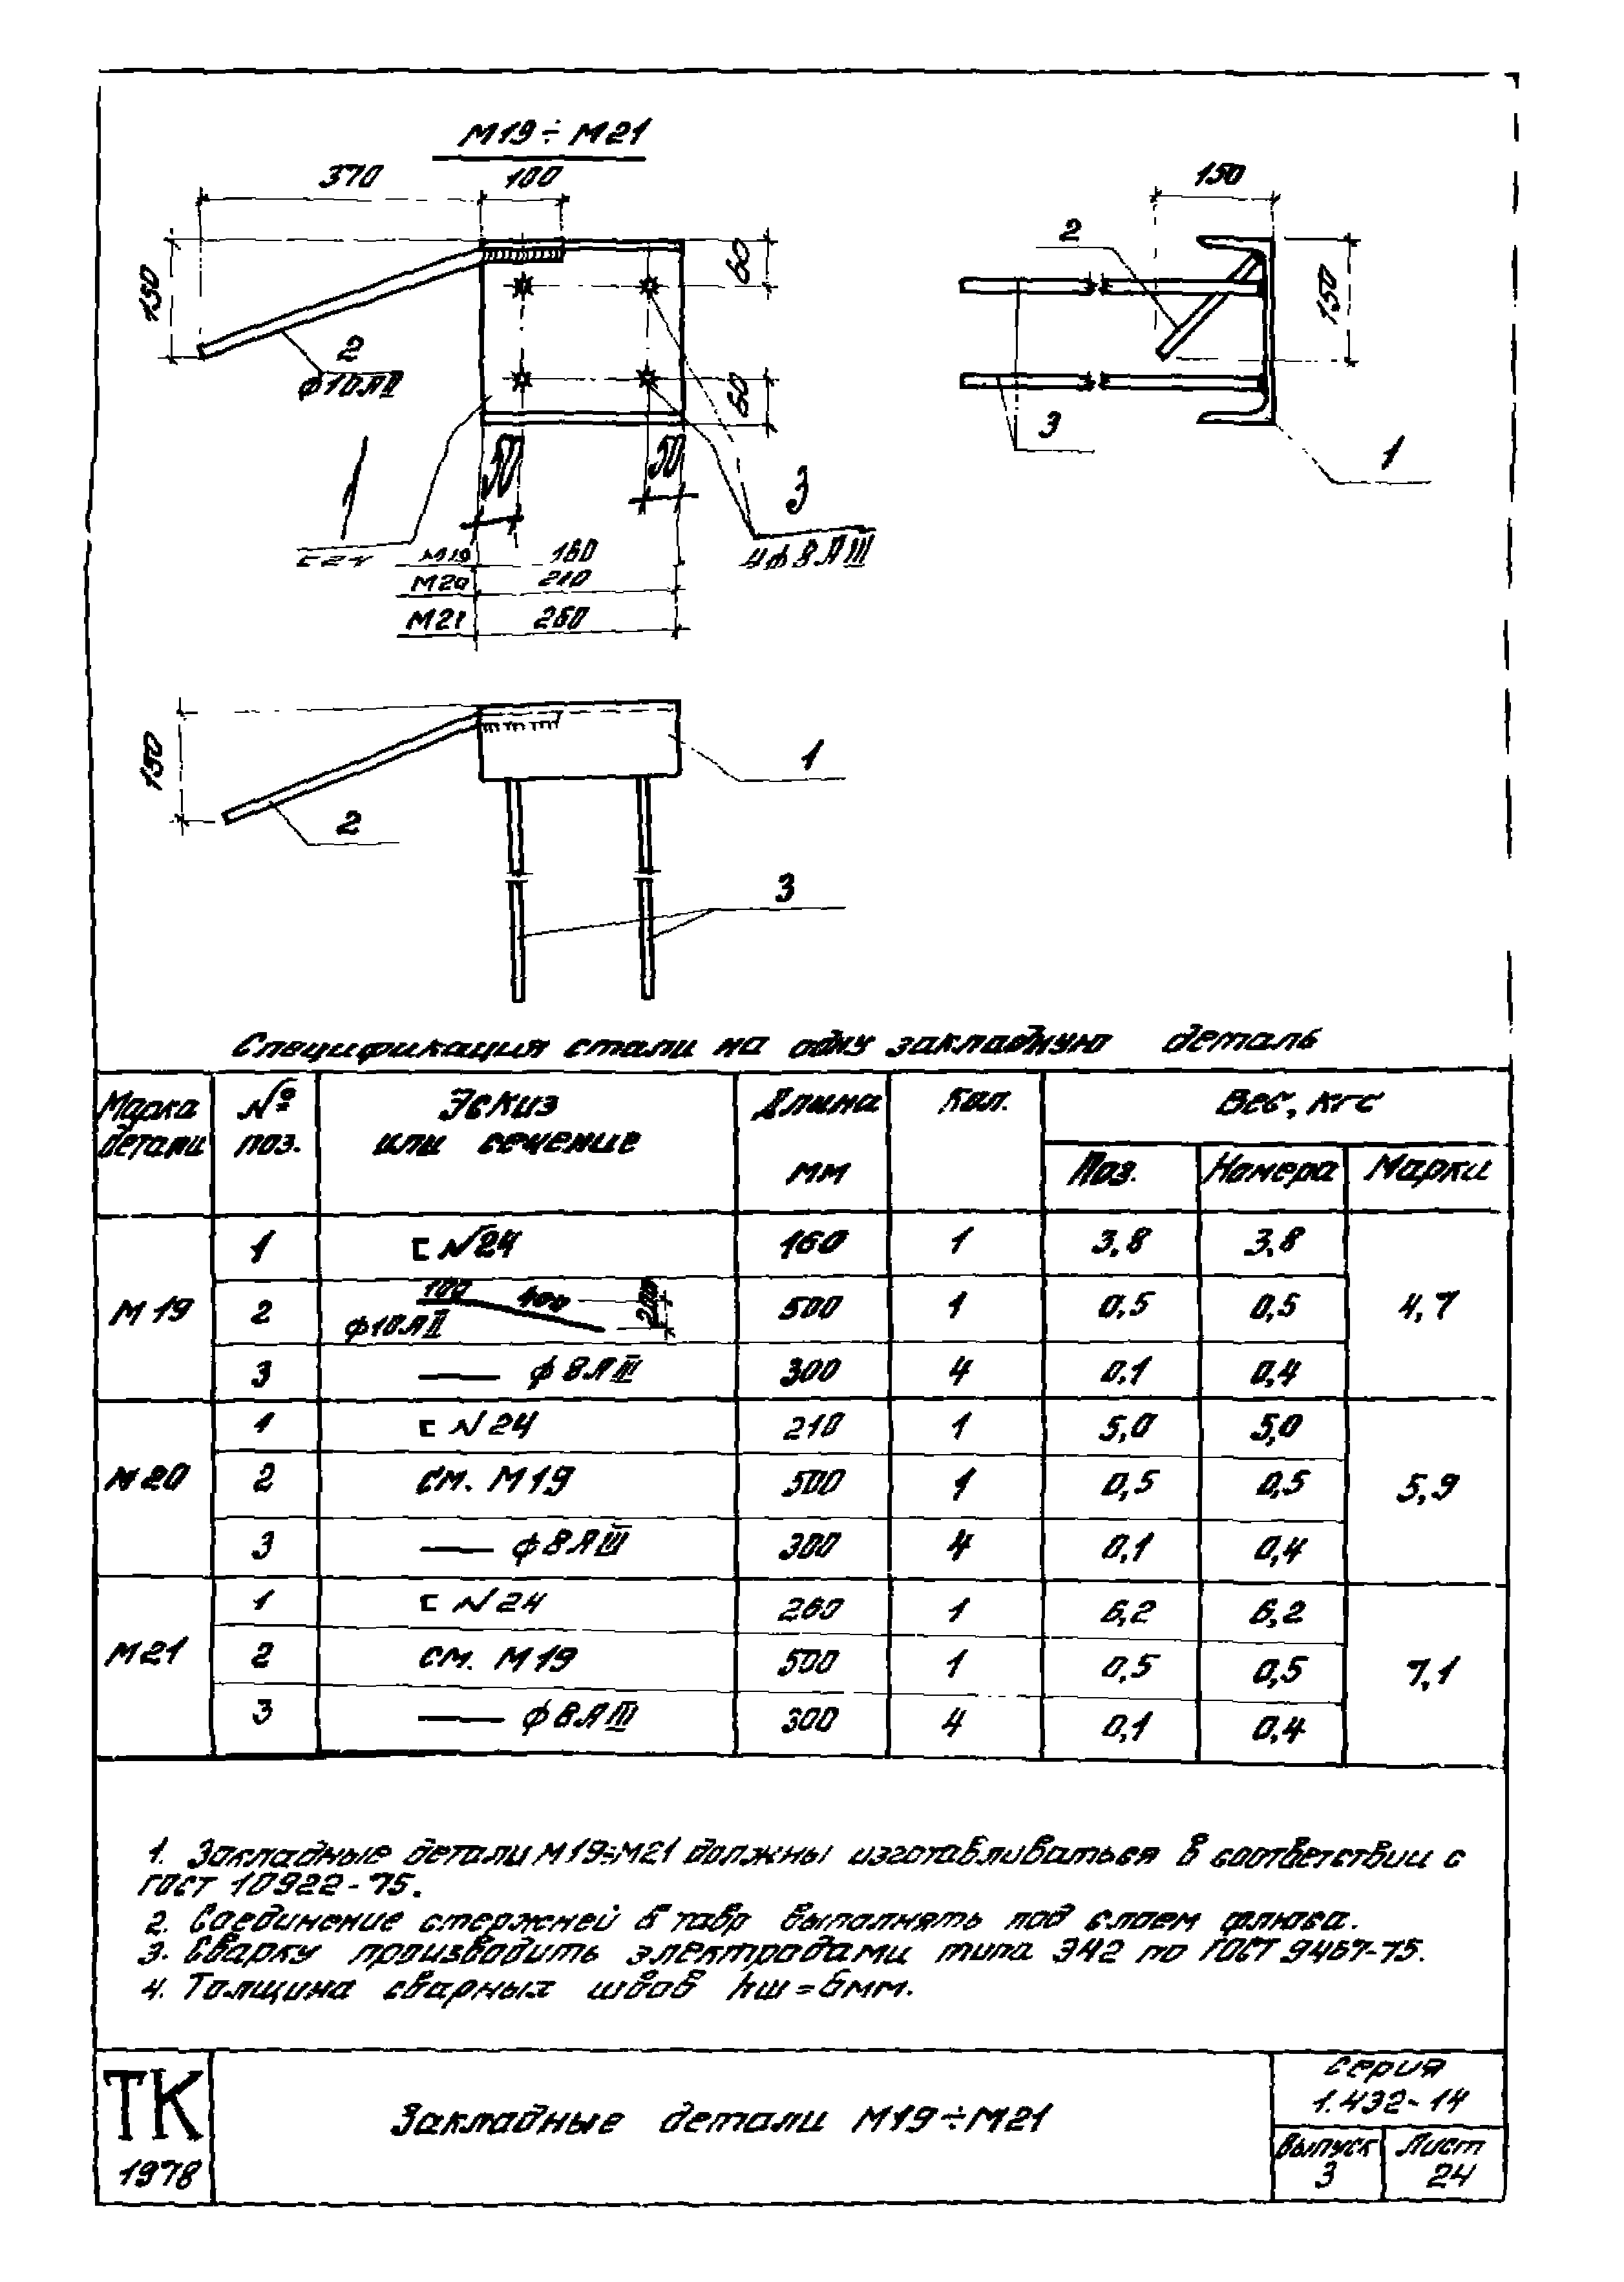 М19÷М21
370 100 150
150 60 2 150
2
ф10АII
60
3
1
50 50 3 1
С 24 М19 160 4ф8АIII
М20 210
М21 260
150 1
2
3
Спецификация стали на одну закладную деталь
Марка детали № поз. Эскиз или сечение Длина мм Кол. Вес, кгс
Поз. Номера Марки
М19 1 С №24 160 1 3,8 3,8 4,7
2 ф10АII 100 400 500 1 0,5 0,5
3 ф8АIII 300 4 0,1 0,4
М20 1 С №24 210 1 5,0 5,0 5,9
2 см. М19 500 1 0,5 0,5
3 ф8АIII 300 4 0,1 0,4
М21 1 С №24 260 1 6,2 6,2 7,1
2 см. М19 500 1 0,5 0,5
3 ф8АIII 300 4 0,1 0,4
1. Закладные детали М19÷М21 должны изготавливаться в соответствии с
ГОСТ 10922-75.
2. Соединение стержней в тавр выполнять под слоем флюса.
3. Сварку производить электродами типа Э42 по ГОСТ 9467-75.
4. Толщина сварных швов hш=6мм.
ТК
1978
Закладные детали М19÷М21
Серия
1.432-14
Выпуск
3
Лист
24